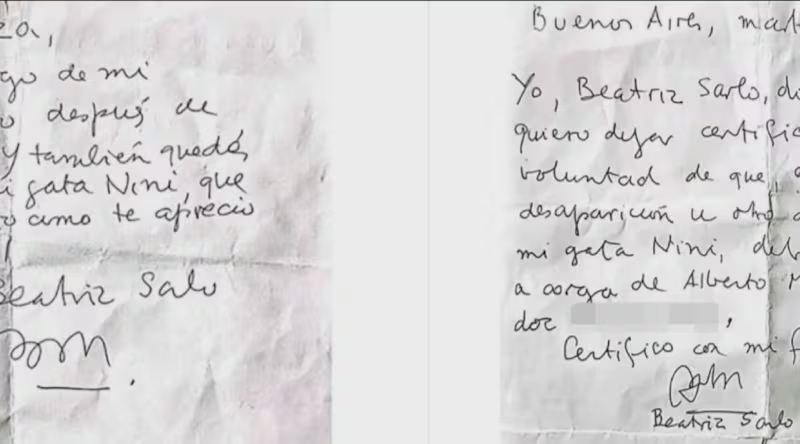 za,
go de mi
o después de
y también quedás
i gata Nini, que
o como te aprecio
Beatriz Sarlo
Buenos Aires, mart
Yo, Beatriz Sarlo, di
quiero dejar certific
voluntad de que,
desaparición u otro
mi gata Nini, deb
a corga de Alberto M
doc ,
Certifico con mi f
Beatriz Sarlo